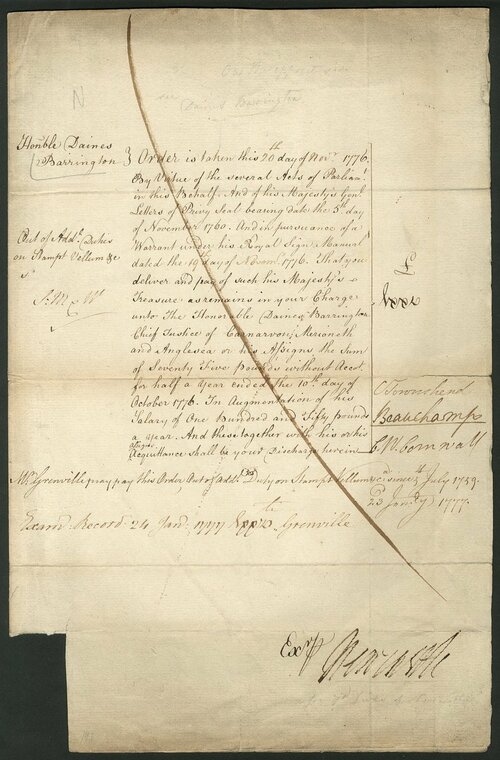 N
Daines Barrington
Honble Daines
Barrington
Order is taken this 20th day of Novr. 1776.
By Virtue of the several Acts of Parliamt.
in this Behalf. And of his Majesty's Genl.
Letters of Privy Seal bearing date the 5th day
of November 1760. And in pursuance of a
Warrant under his Royal Sign Manual
dated the 19th day of Novem 1776. That you
deliver and pay of such his Majesty's
Treasure as remains in your Charge
unto The Honorable Daines Barrington
Chief Justice of Carnarvon, Merioneth
and Anglesea or his Assigns, the Sum
of Seventy Five Pounds without Accot.
for half a Year ended the 10th day of
October 1776. In Augmentation of his
Salary of One Hundred and Fifty pounds
a Year. And these together with his or his
Assigns
Acquittance shall be your Discharge herein
Out of Addl. Duties
on Stampt Vellum &c
£xx
C Townshend
Beauchamp
C. W. Cornwall
Mr. Grenville pray pay this Order Out of Addl. Duty on Stampt Vellum &ca since 5th July 1759.
23 Janry 1777.
Examd. Record. 24 Janry 1777 Grenville
Exr